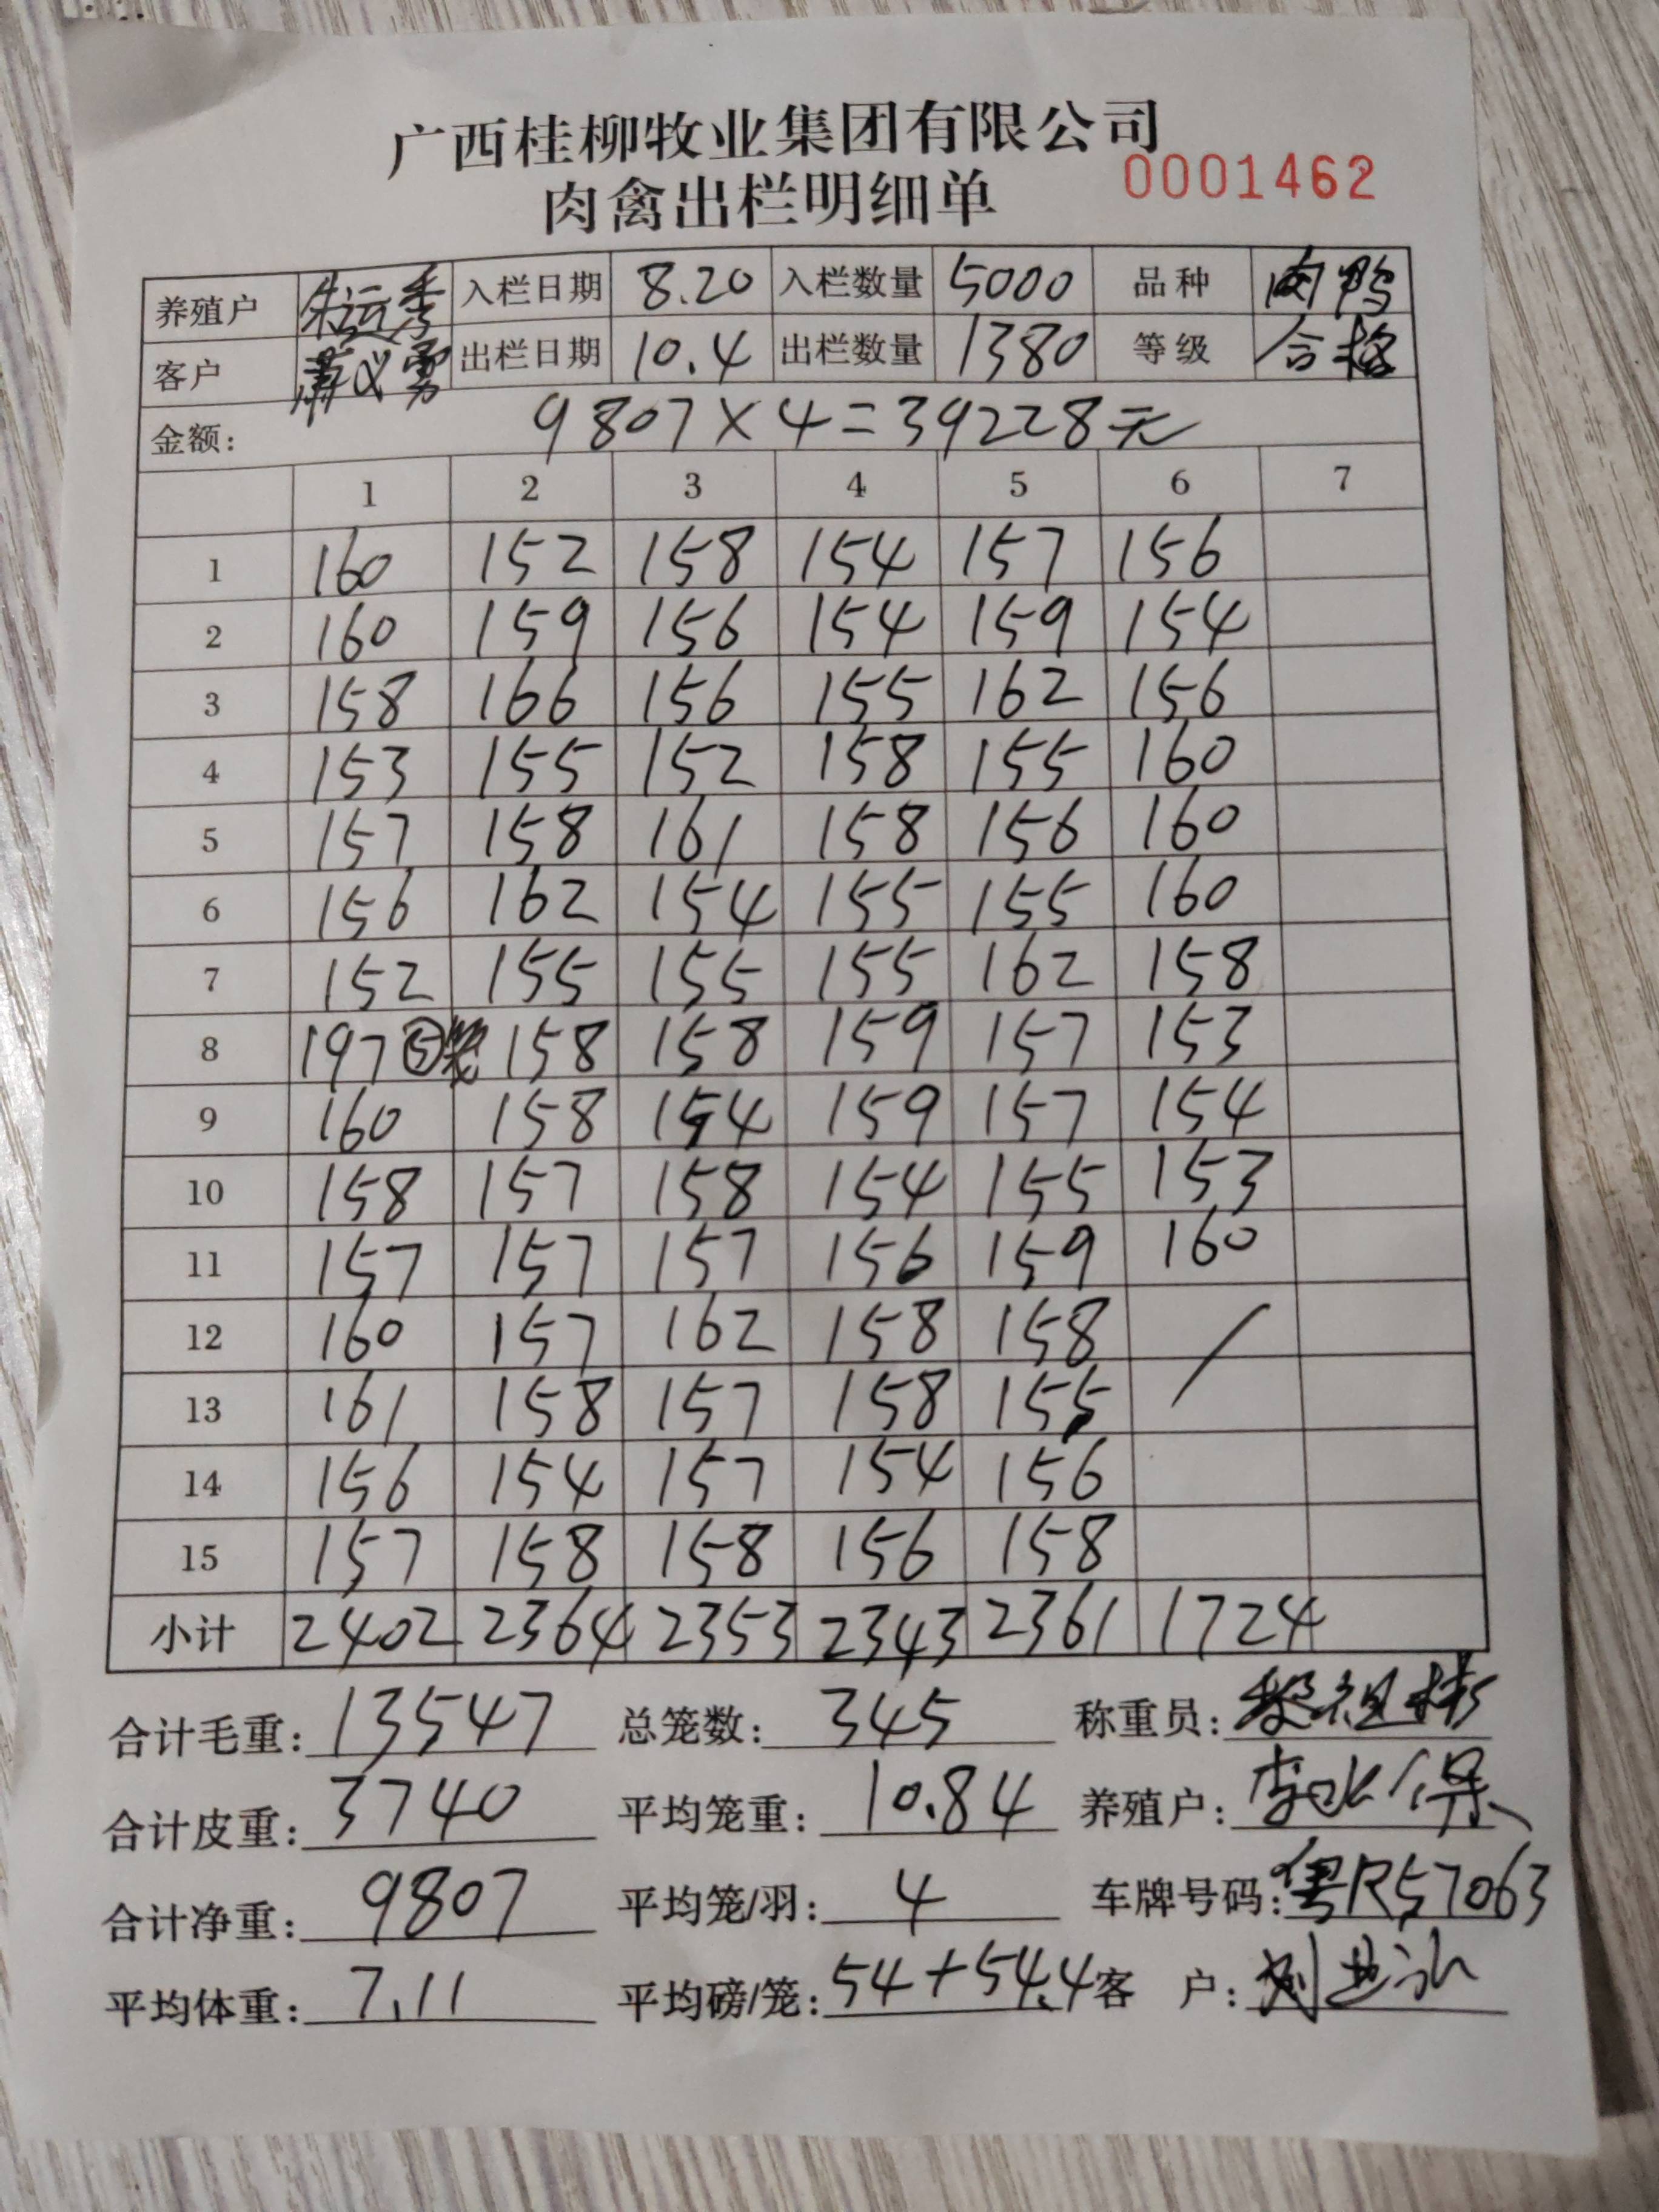 广西桂柳牧业集团有限公司
肉禽出栏明细单 0001462
养殖户 朱运秀 入栏日期 8.20 入栏数量 5000 品种 肉鸭
客户 萧义勇 出栏日期 10.4 出栏数量 1380 等级 合格
金额: 9807×4=39228元
1 2 3 4 5 6 7
1 160 152 158 154 157 156
2 160 159 156 154 159 154
3 158 166 156 155 162 156
4 153 155 152 158 155 160
5 157 158 161 158 156 160
6 156 162 154 155 155 160
7 152 155 155 155 162 158
8 197⑤笼 158 158 159 157 153
9 160 158 154 159 157 154
10 158 157 158 154 155 153
11 157 157 157 156 159 160
12 160 157 162 158 158 /
13 161 158 157 158 155
14 156 154 157 154 156
15 157 158 158 156 158
小计 2402 2364 2353 2343 2361 1724
合计毛重: 13547 总笼数: 345 称重员:
合计皮重: 3740 平均笼重: 10.84 养殖户: 李水保
合计净重: 9807 平均笼/羽: 4 车牌号码: 粤R57063
平均体重: 7.11 平均磅/笼: 54+54.4 客 户: